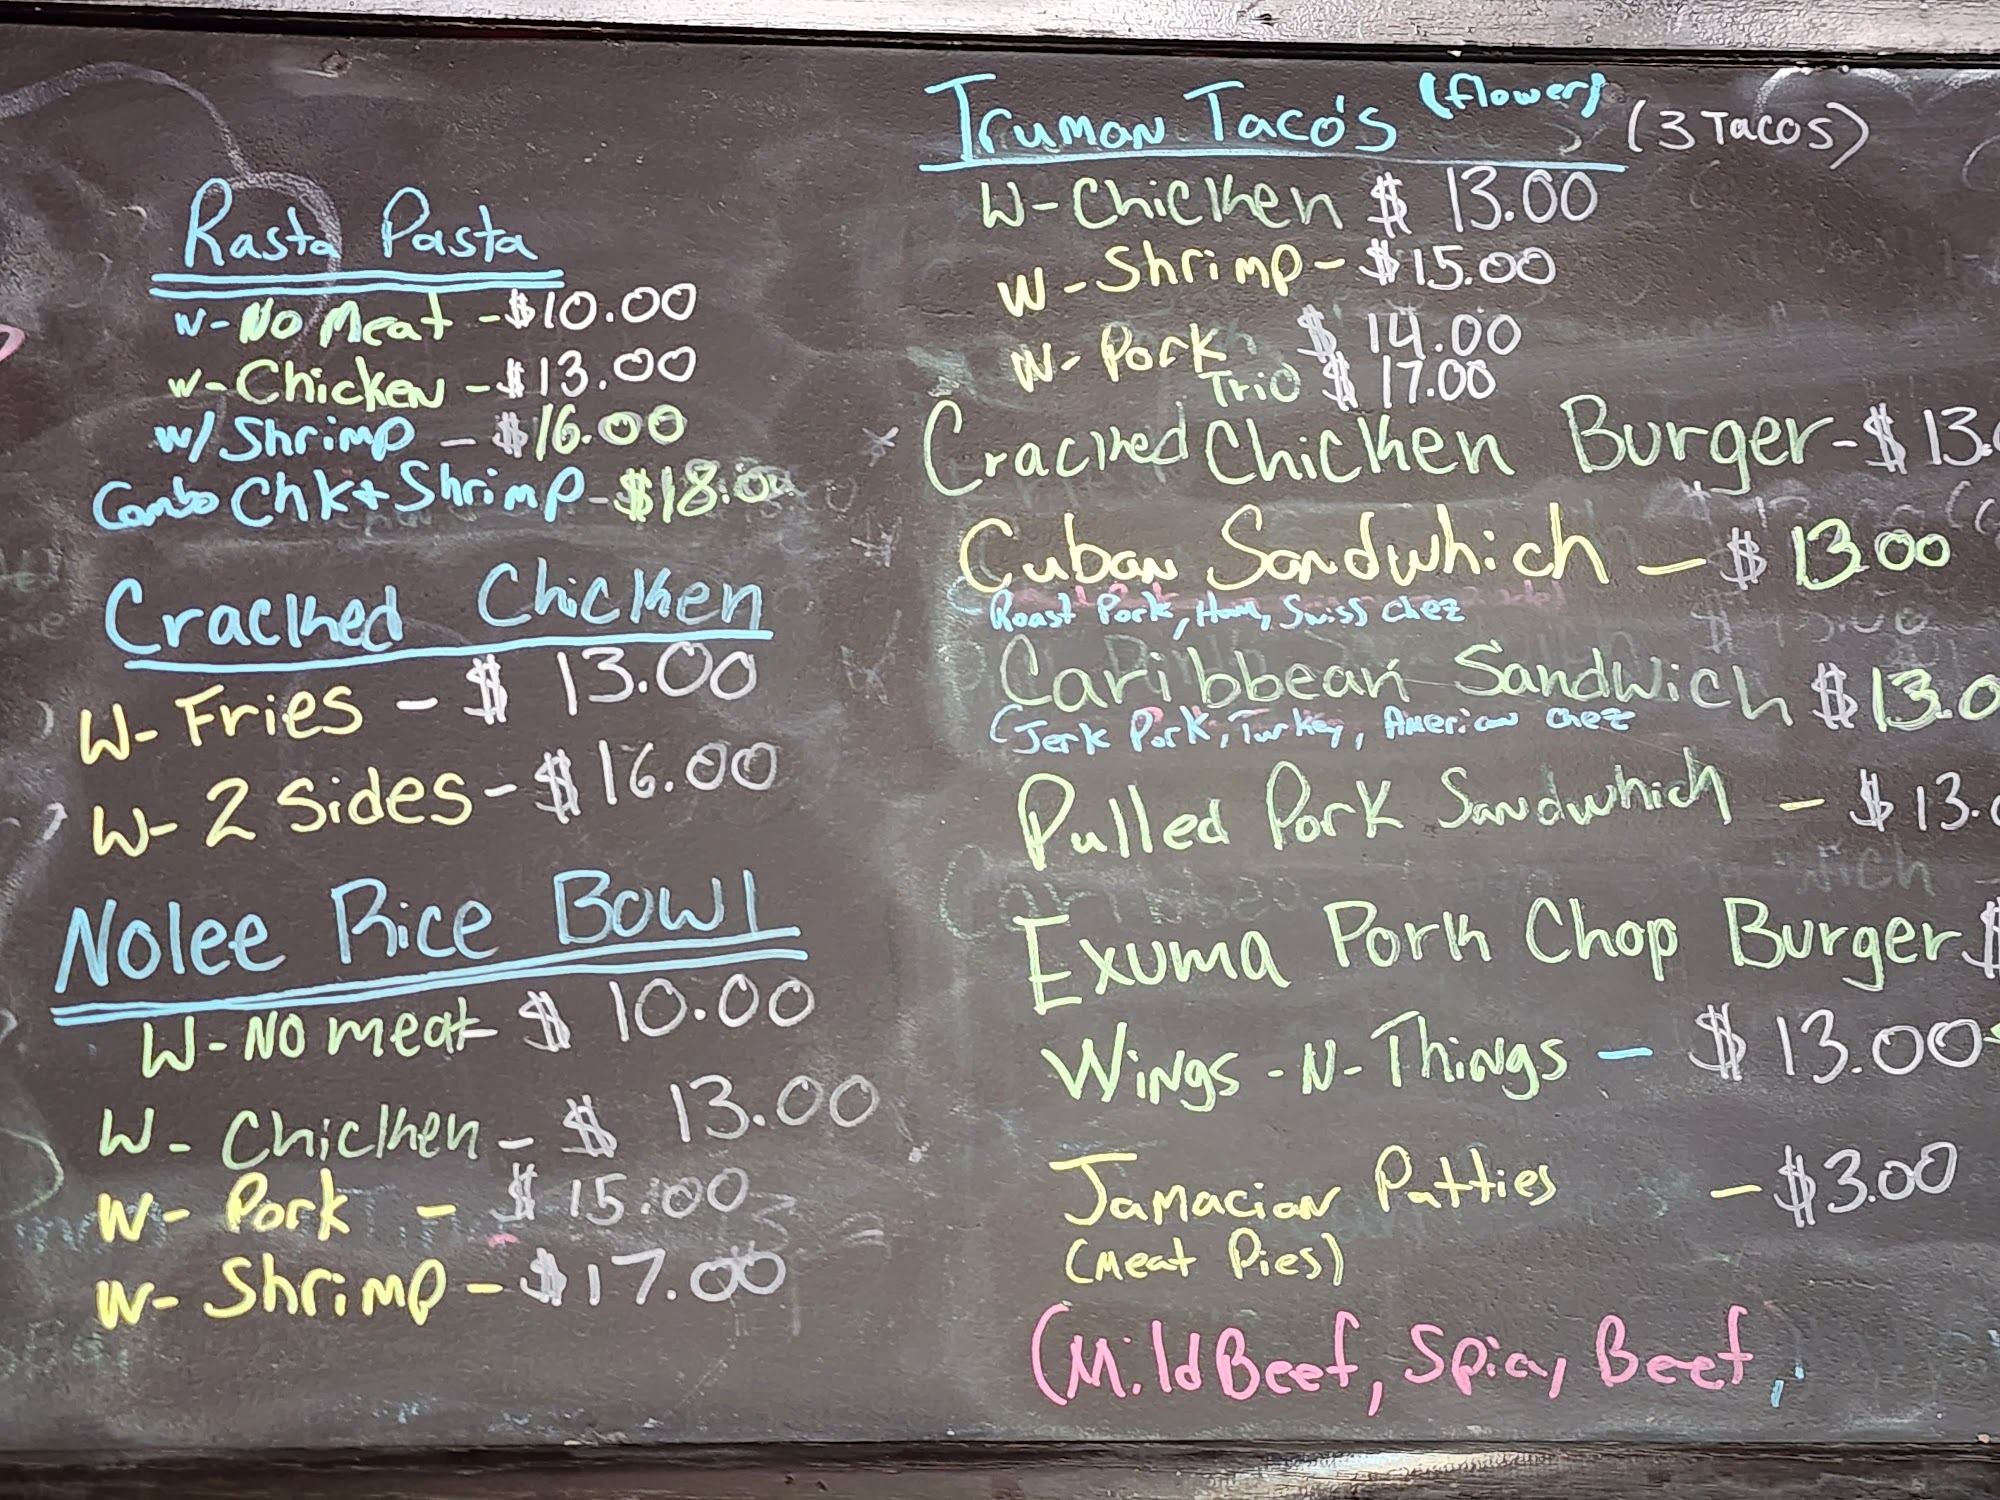 Rasta Pasta
w- No Meat - $10.00
w- Chicken - $13.00
w/ Shrimp - $16.00
Combo Chk + Shrimp - $18.00
Cracked Chicken
W- Fries - $ 13.00
W- 2 Sides - $16.00
Nolee Rice Bowl
W- No meat - $ 10.00
W- Chicken - $ 13.00
W- Pork - $ 15.00
W- Shrimp - $17.00
Truman Taco's (flower) (3 Tacos)
W- Chicken $ 13.00
W- Shrimp - $15.00
W- Pork $ 14.00
Trio $ 17.00
Cracked Chicken Burger - $ 13.
Cuban Sandwhich - $ 13.00
Roast Pork, Ham, Swiss chez
Caribbean Sandwich $13.0
(Jerk Pork, Turkey, American chez
Pulled Pork Sandwhich - $ 13.
Exuma Pork Chop Burger $
Wings-N-Things - $ 13.00
Jamacian Patties - $3.00
(Meat Pies)
(Mild Beef, Spicy Beef,